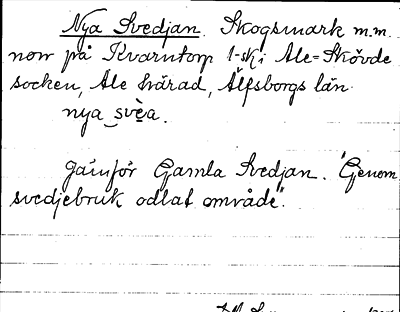 Nya Svedjan. Skogsmark m.m.
norr på Kvarntorp 1-sk i Ale-Skövde
socken, Ale härad, Älfsborgs län
nya svèa.
Jämför Gamla Svedjan. "Genom
svedjebruk odlat område".